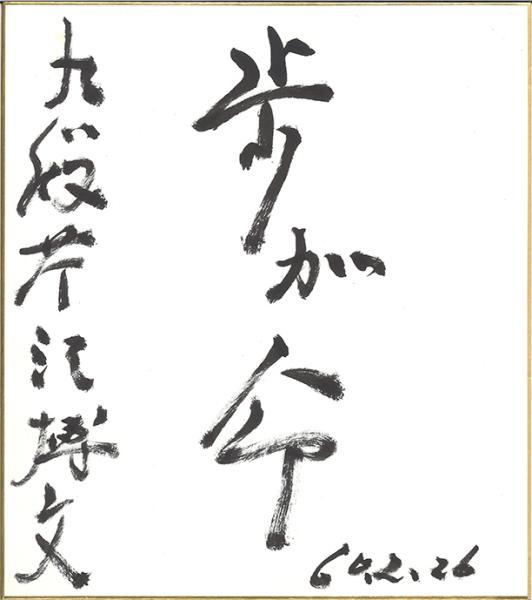 歩が命
60.2.26
九段芹沢博文